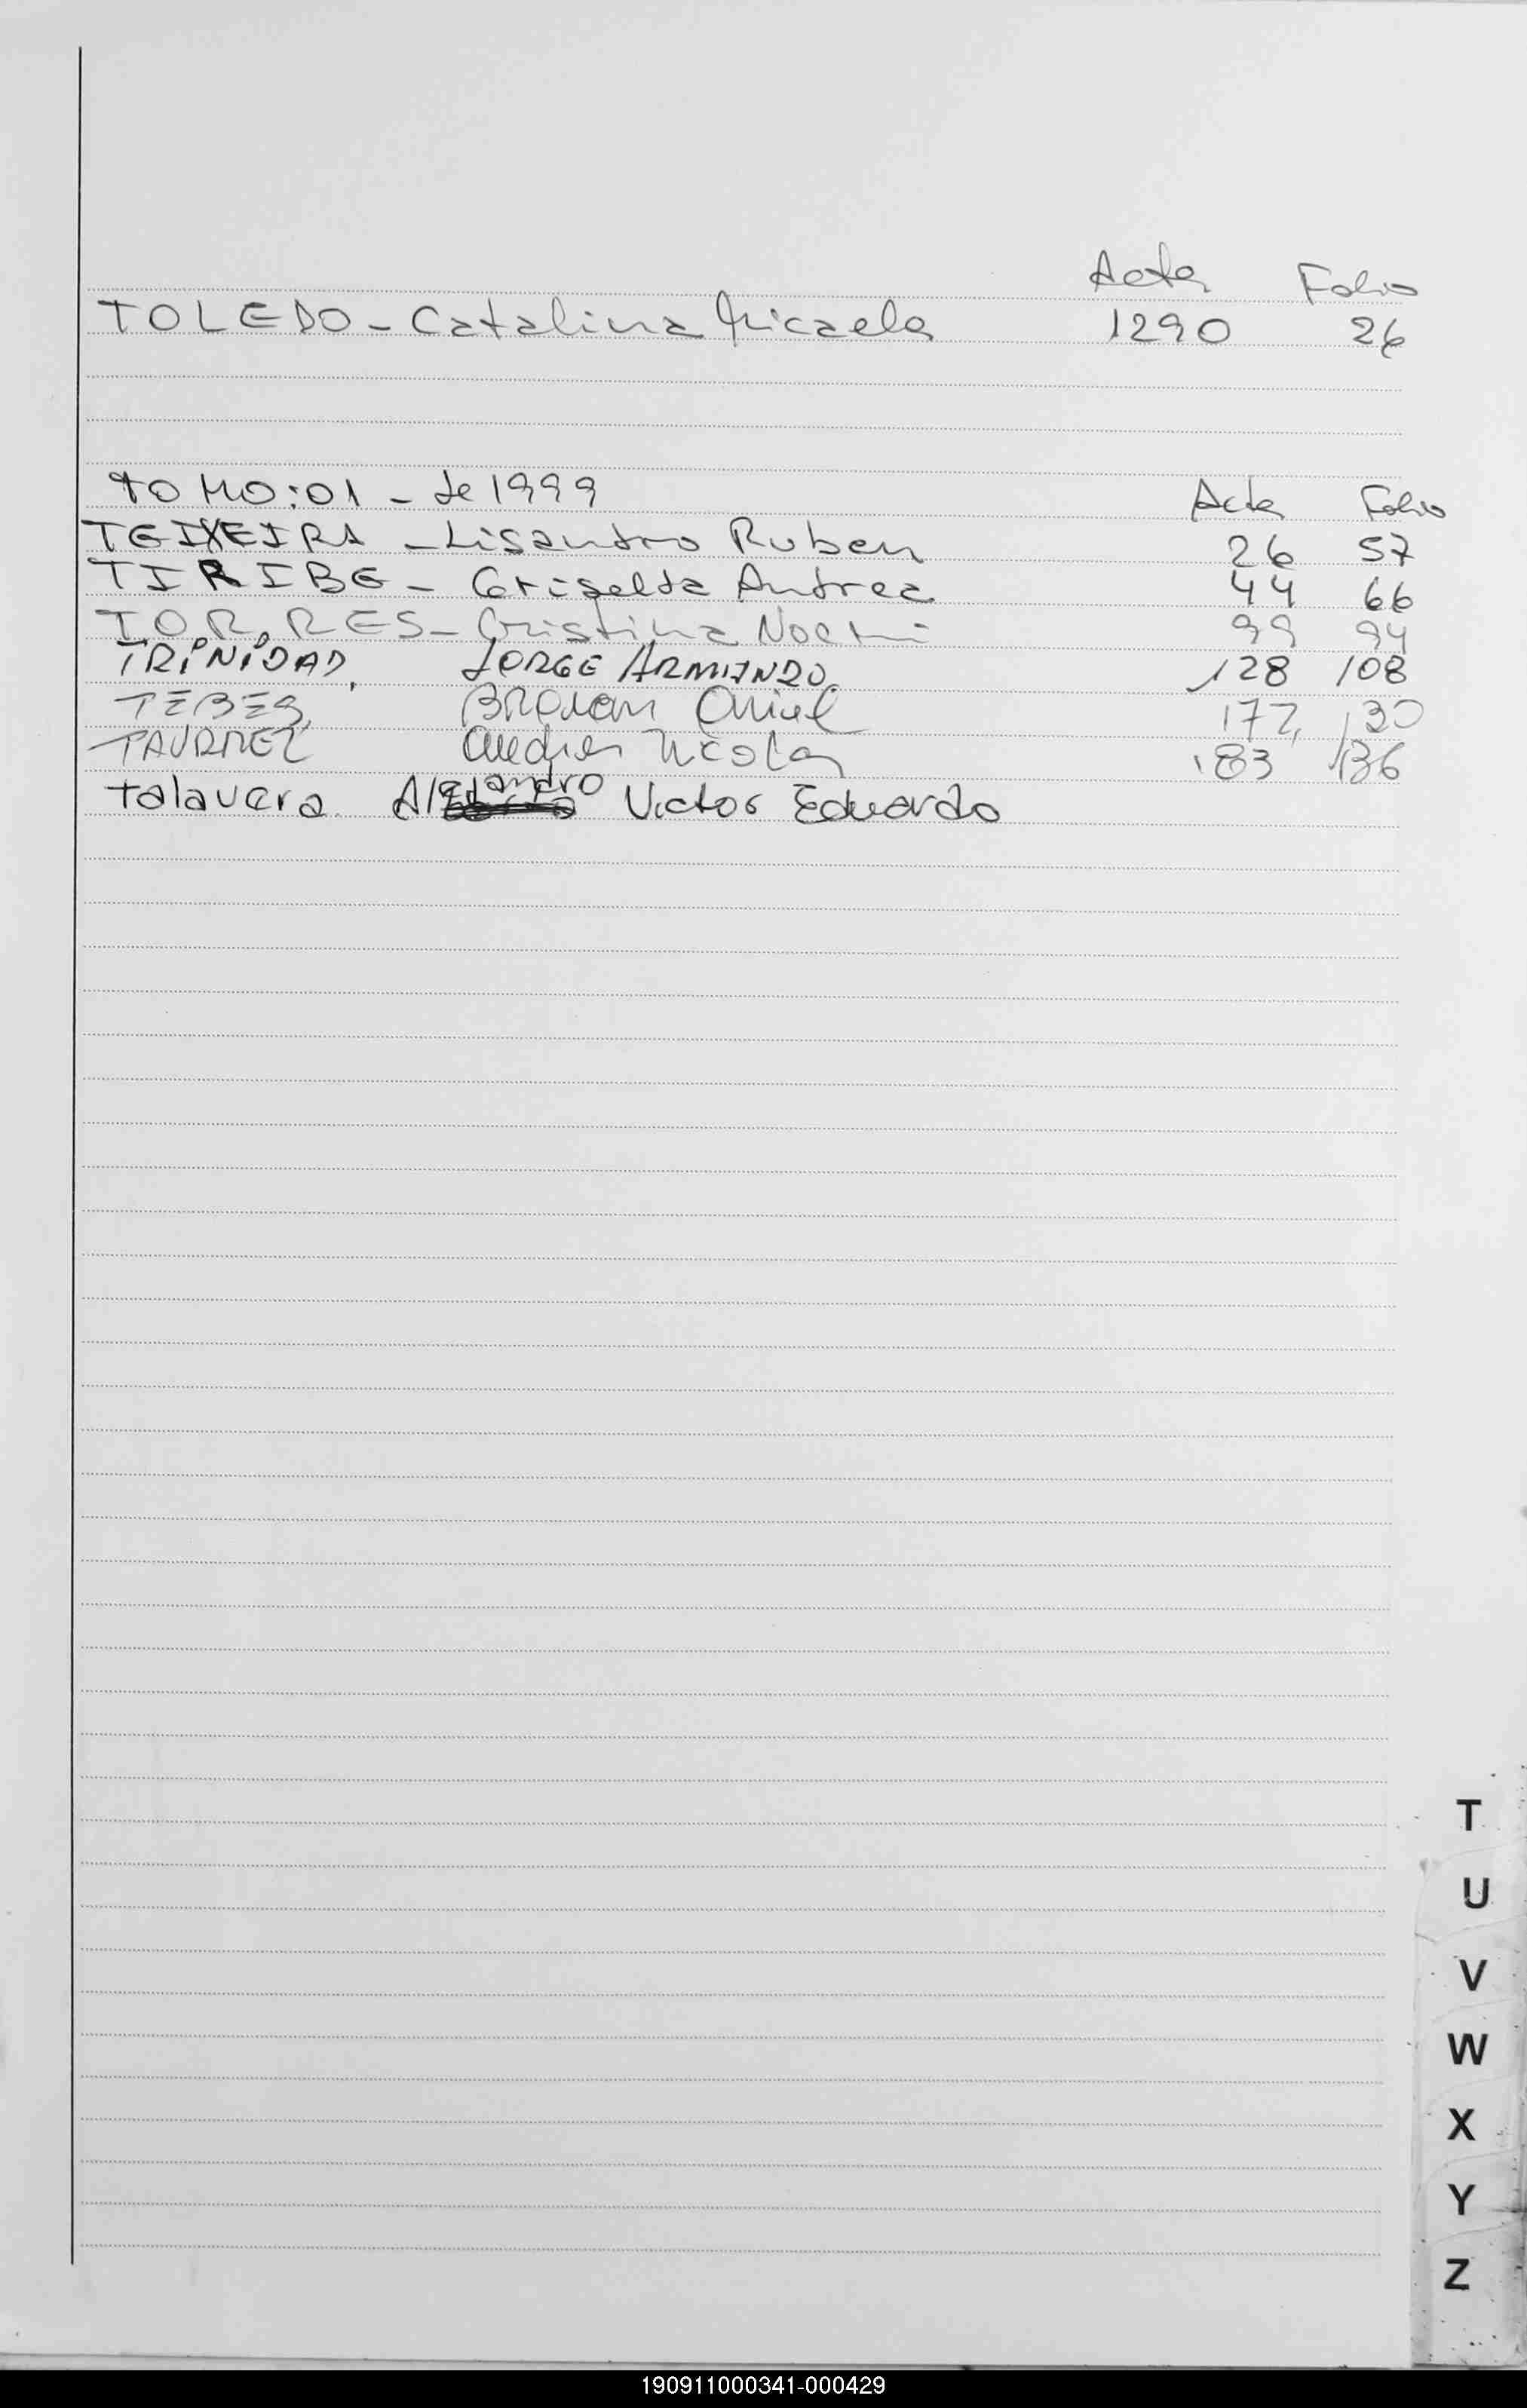 Acta Folio
TOLEDO - Catalina Micaela 1290 26
TOMO: 01 - de 1999 Acta Folio
TEIXEIRA - Lisandro Ruben 26 57
TIRIBE - Griselda Andrea 44 66
TORRES - Cristina Noemi 99 94
TRINIDAD, JORGE ARMANDO 128 108
TEBES, Ariel 172 130
Nicolas 183 136
talavera Alejandro Victor Eduardo
T
U
V
W
X
Y
Z
190911000341-000429